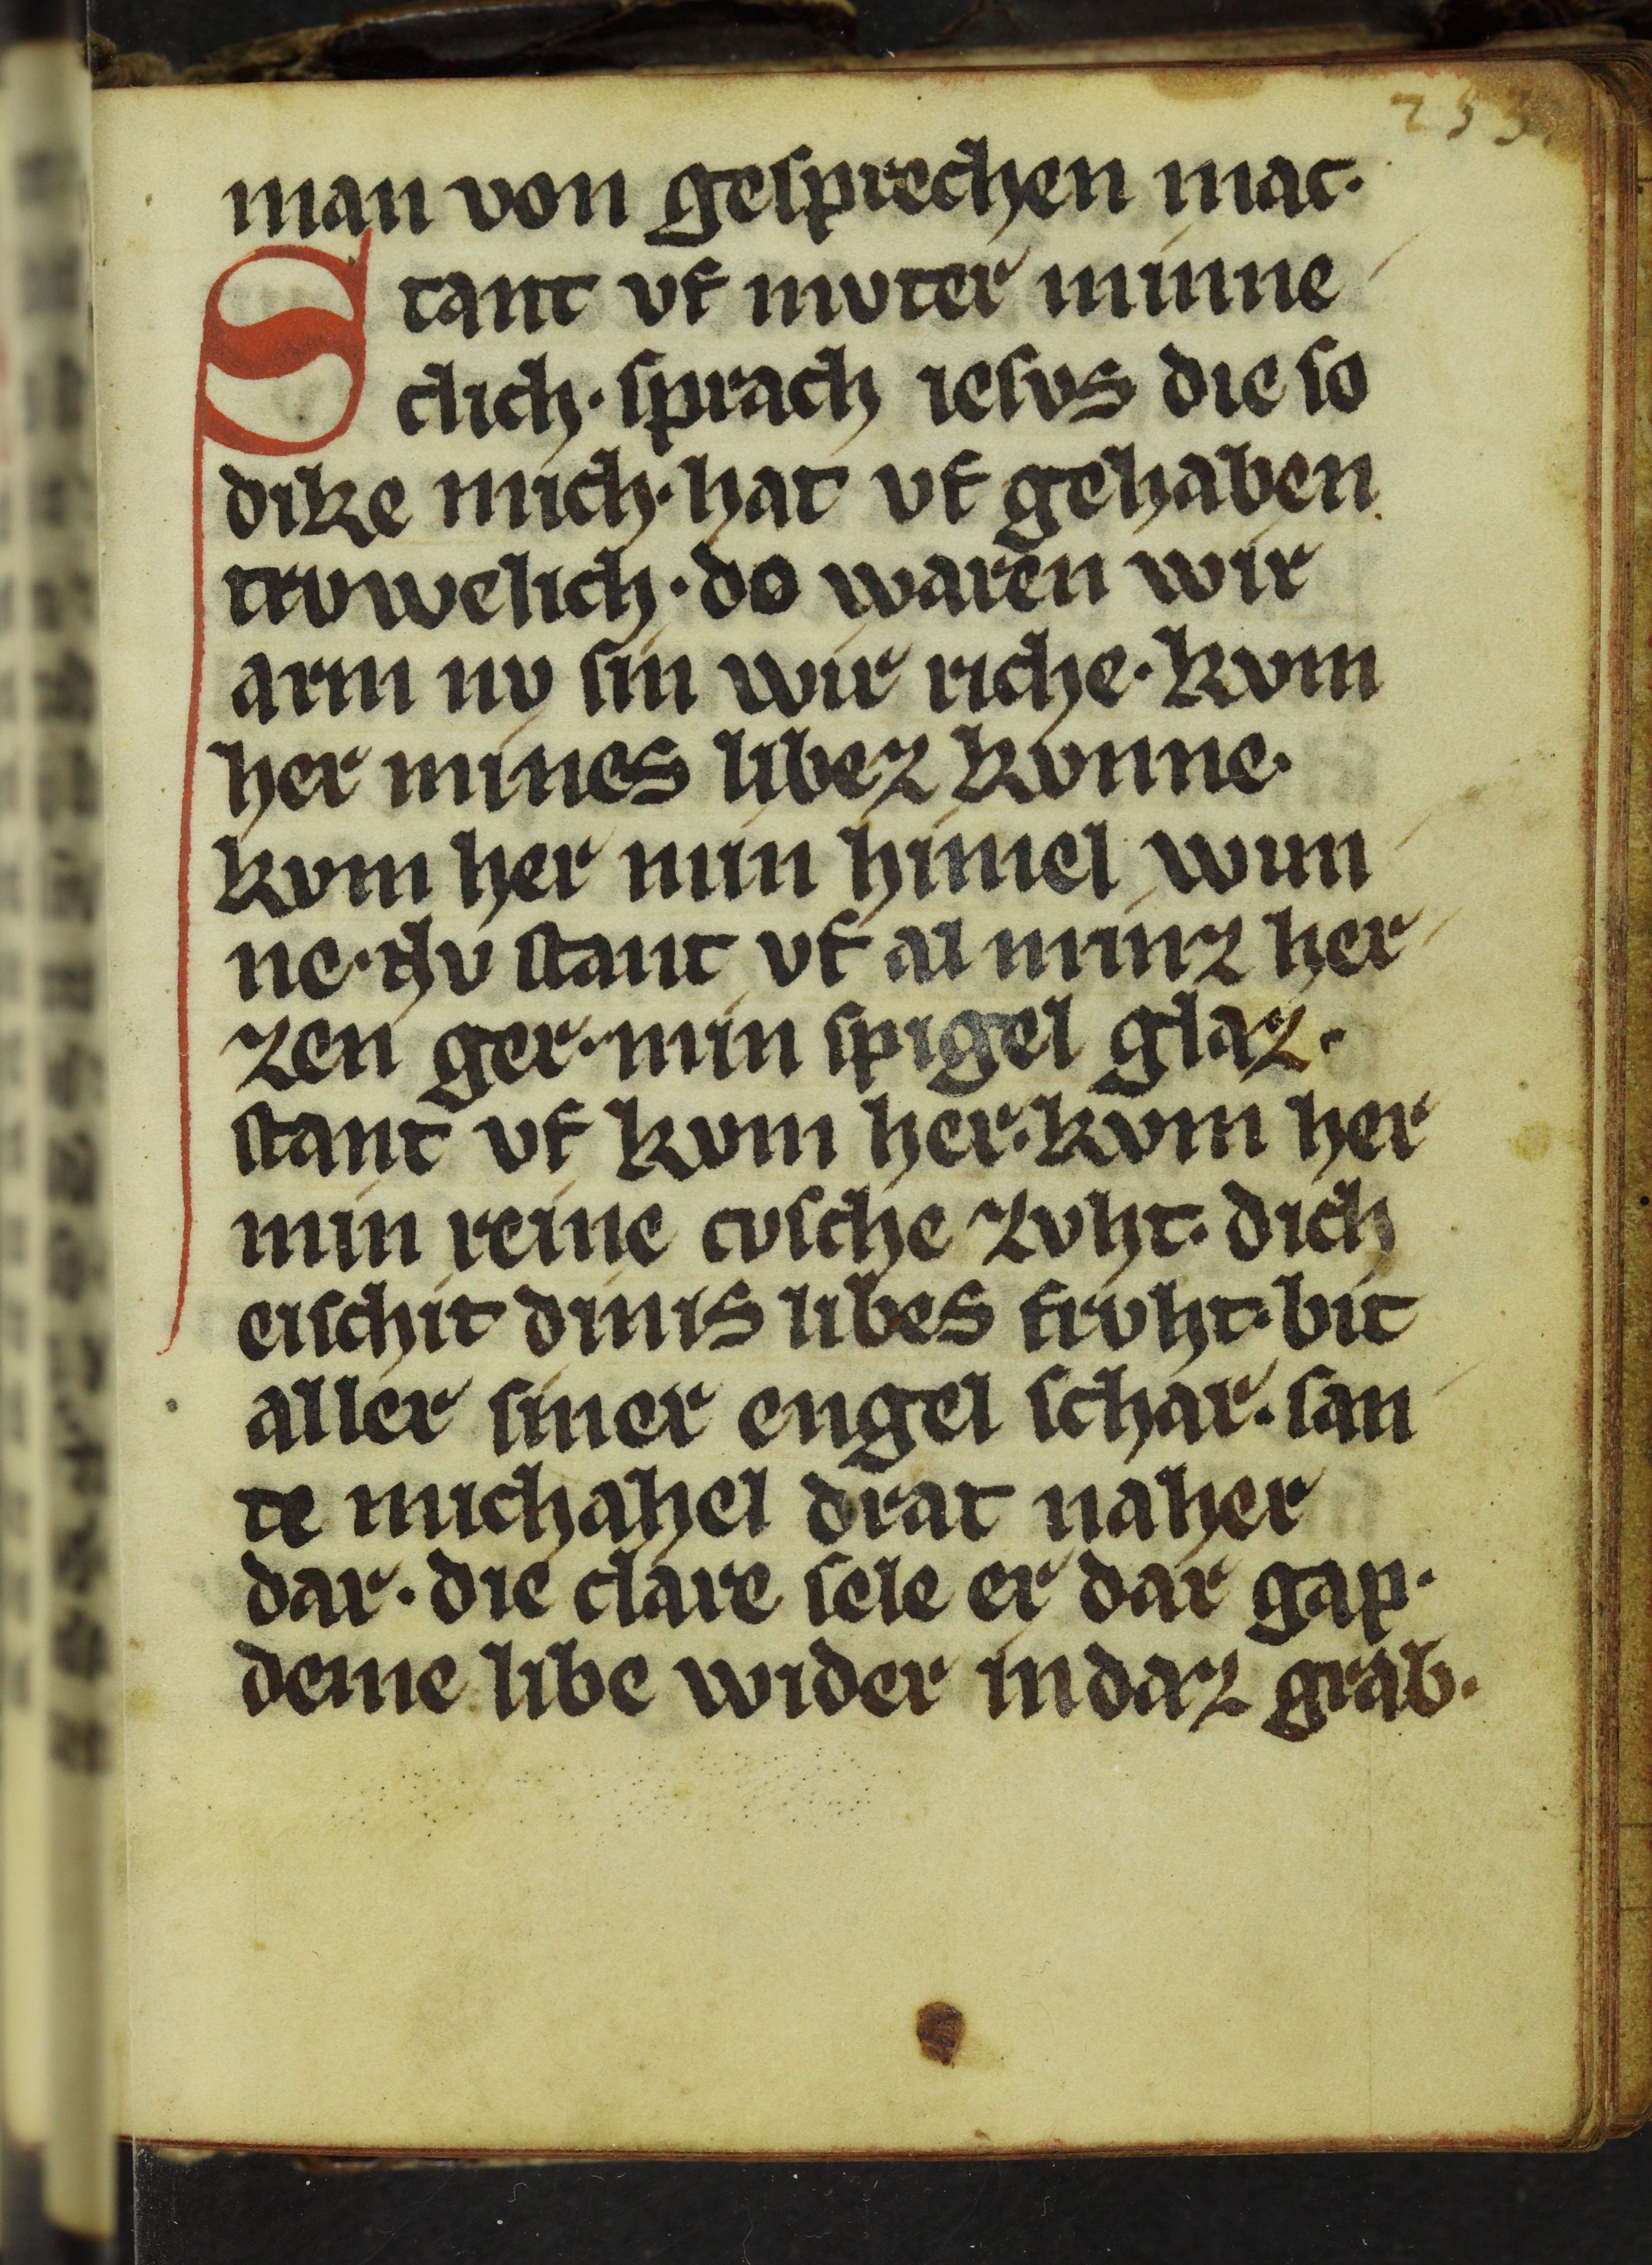 253
man von gesprechen mac·
Stant vf mvter minne
clich· sprach iesvs die so
dike mich· hat vf gehaben
trvwelich· do waren wir
arm nv sin wir riche· kvm
her mines libez kvnne·
kvm her min himel wun
ne· dv stant vf al minz her
zen ger· min spigel glaz·
stant vf kvm her· kvm her
min reine cvsche zvht· dich
eischit dinis libes frvht· bit
aller siner engel schar· san
te michahel drat naher
dar· die clare sele er dar gap·
deme libe wider in daz grab·